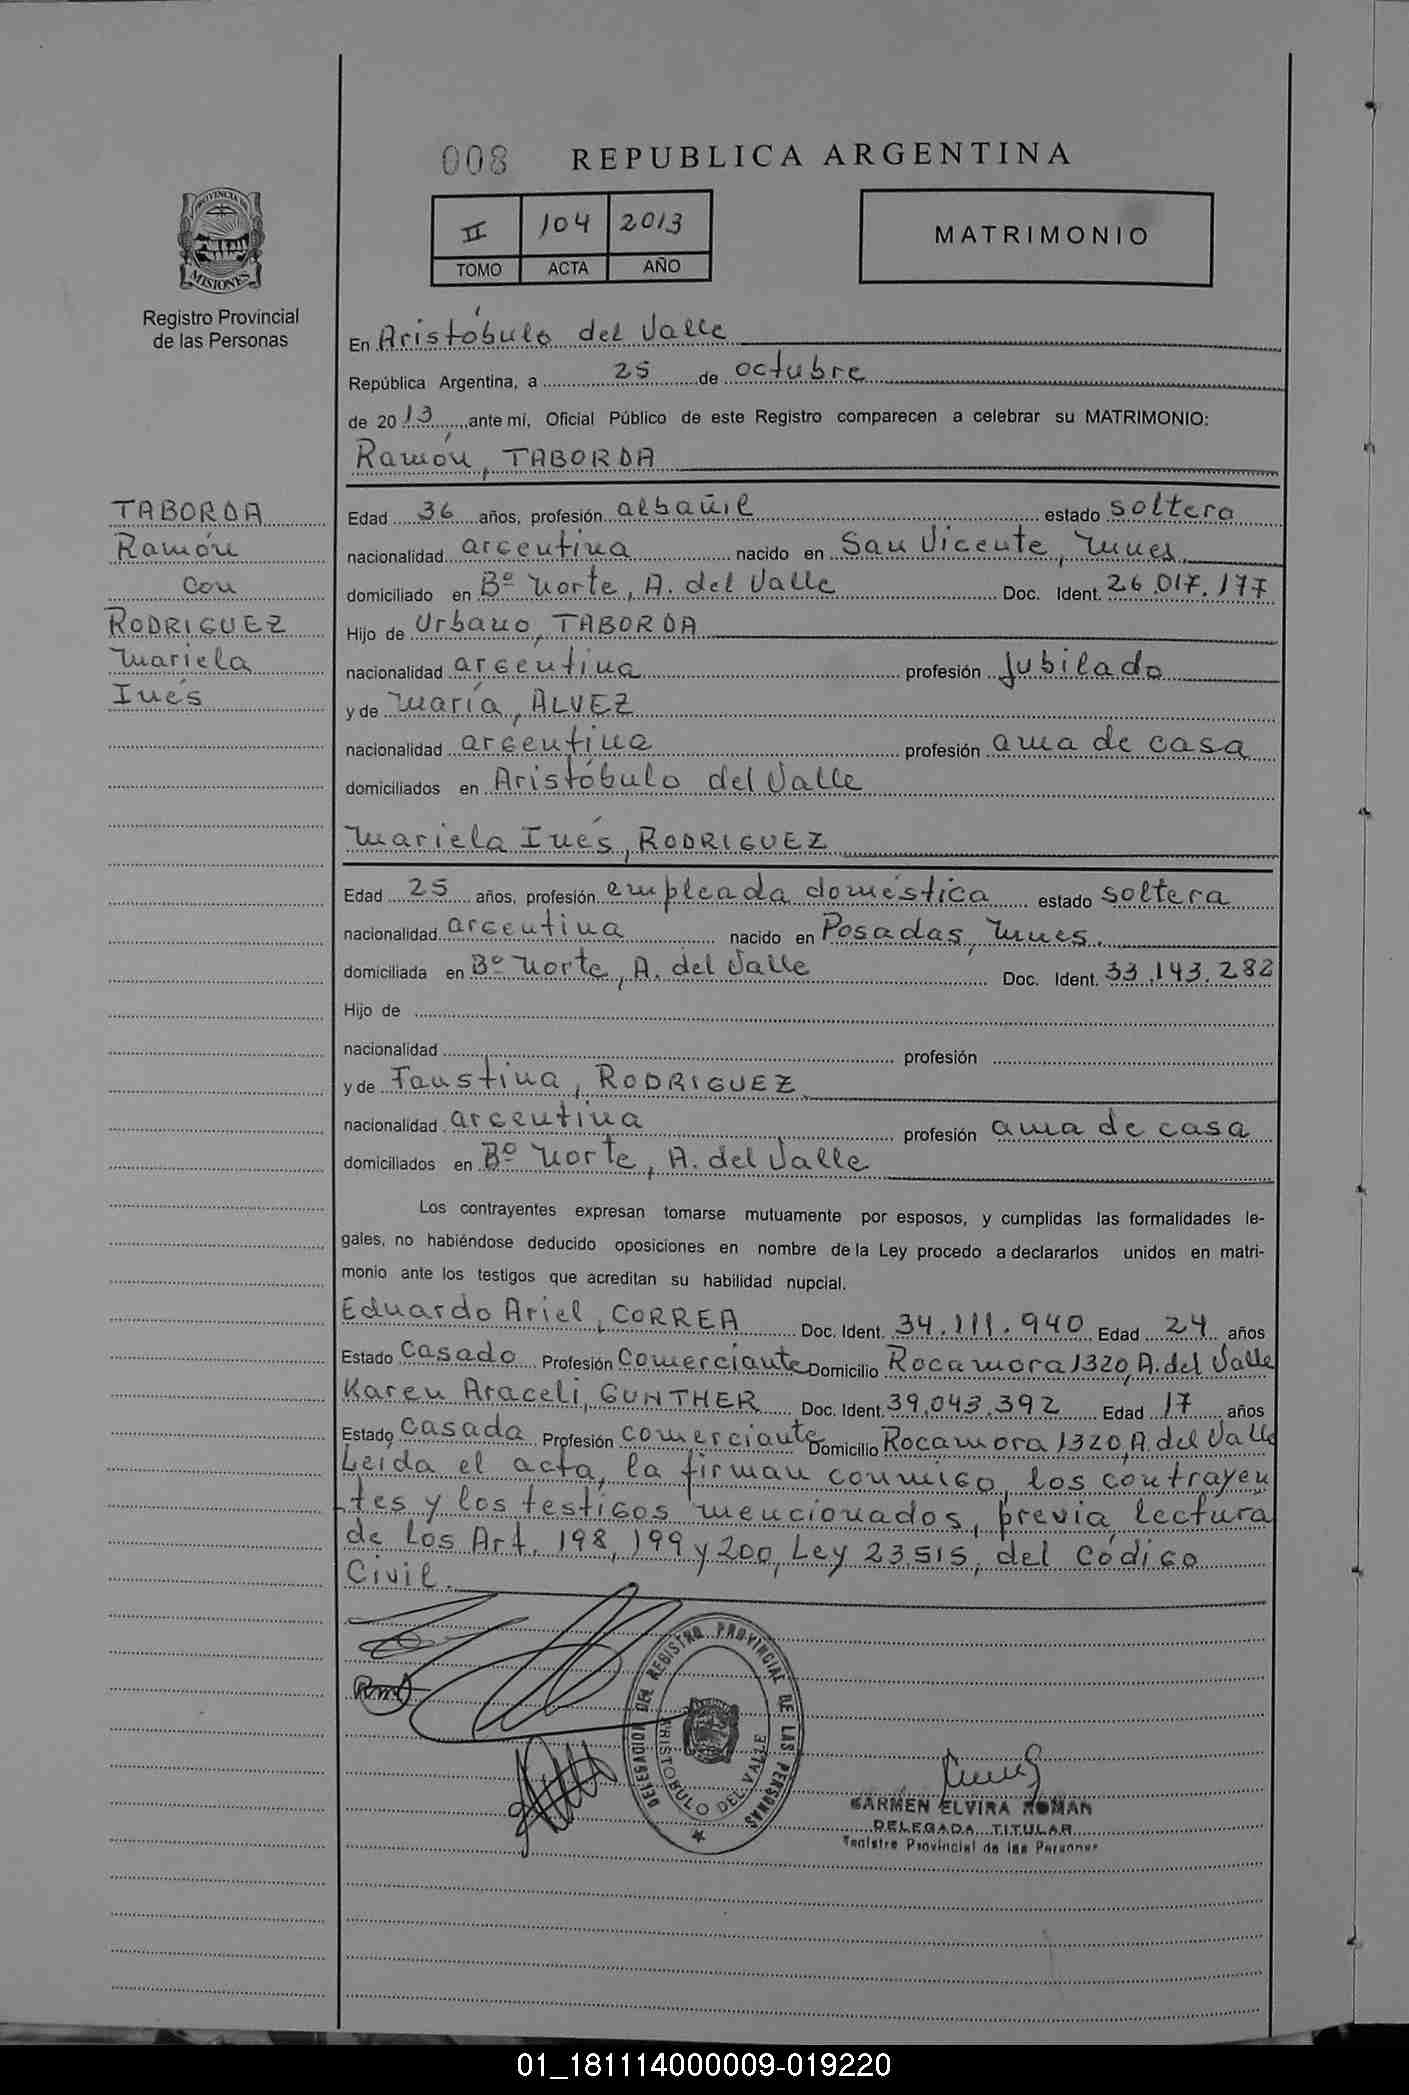 008 REPUBLICA ARGENTINA
PROVINCIA DE
MISIONES
Registro Provincial
de las Personas
II 104 2013
TOMO ACTA AÑO
MATRIMONIO
En Aristóbulo del Valle
República Argentina, a 25 de octubre
de 2013 ante mí, Oficial Público de este Registro comparecen a celebrar su MATRIMONIO:
Ramón, TABORDA
TABORDA
Ramón
con
RODRIGUEZ
Mariela
Inés
Edad 36 años, profesión albañil estado soltero
nacionalidad argentina nacido en San Vicente, Mnes.
domiciliado en Bº Norte, A. del Valle Doc. Ident. 26.017.177
Hijo de Urbano, TABORDA
nacionalidad argentina profesión jubilado
y de María, ALVEZ
nacionalidad argentina profesión ama de casa
domiciliados en Aristóbulo del Valle
Mariela Inés, RODRIGUEZ
Edad 25 años, profesión empleada doméstica estado soltera
nacionalidad argentina nacido en Posadas, Mnes.
domiciliada en Bº Norte, A. del Valle Doc. Ident. 33.143.282
Hijo de
nacionalidad profesión
y de Faustina, RODRIGUEZ
nacionalidad argentina profesión ama de casa
domiciliados en Bº Norte, A. del Valle
Los contrayentes expresan tomarse mutuamente por esposos, y cumplidas las formalidades le-
gales, no habiéndose deducido oposiciones en nombre de la Ley procedo a declararlos unidos en matri-
monio ante los testigos que acreditan su habilidad nupcial.
Eduardo Ariel, CORREA Doc. Ident. 34.111.940 Edad 24 años
Estado Casado Profesión Comerciante Domicilio Rocamora 1320, A. del Valle
Karen Araceli, GUNTHER Doc. Ident. 39.043.392 Edad 17 años
Estado Casada Profesión comerciante Domicilio Rocamora 1320, A. del Valle
Leída el acta, la firman conmigo, los contrayen
tes y los testigos mencionados, previa lectura
de los Art. 198, 199 y 200, Ley 23.515, del Código
Civil.
DELEGACION DEL REGISTRO PROVINCIAL DE LAS PERSONAS
ARISTOBULO DEL VALLE
CARMEN ELVIRA ROMAN
DELEGADA TITULAR
Registro Provincial de las Personas
01_181114000009-019220